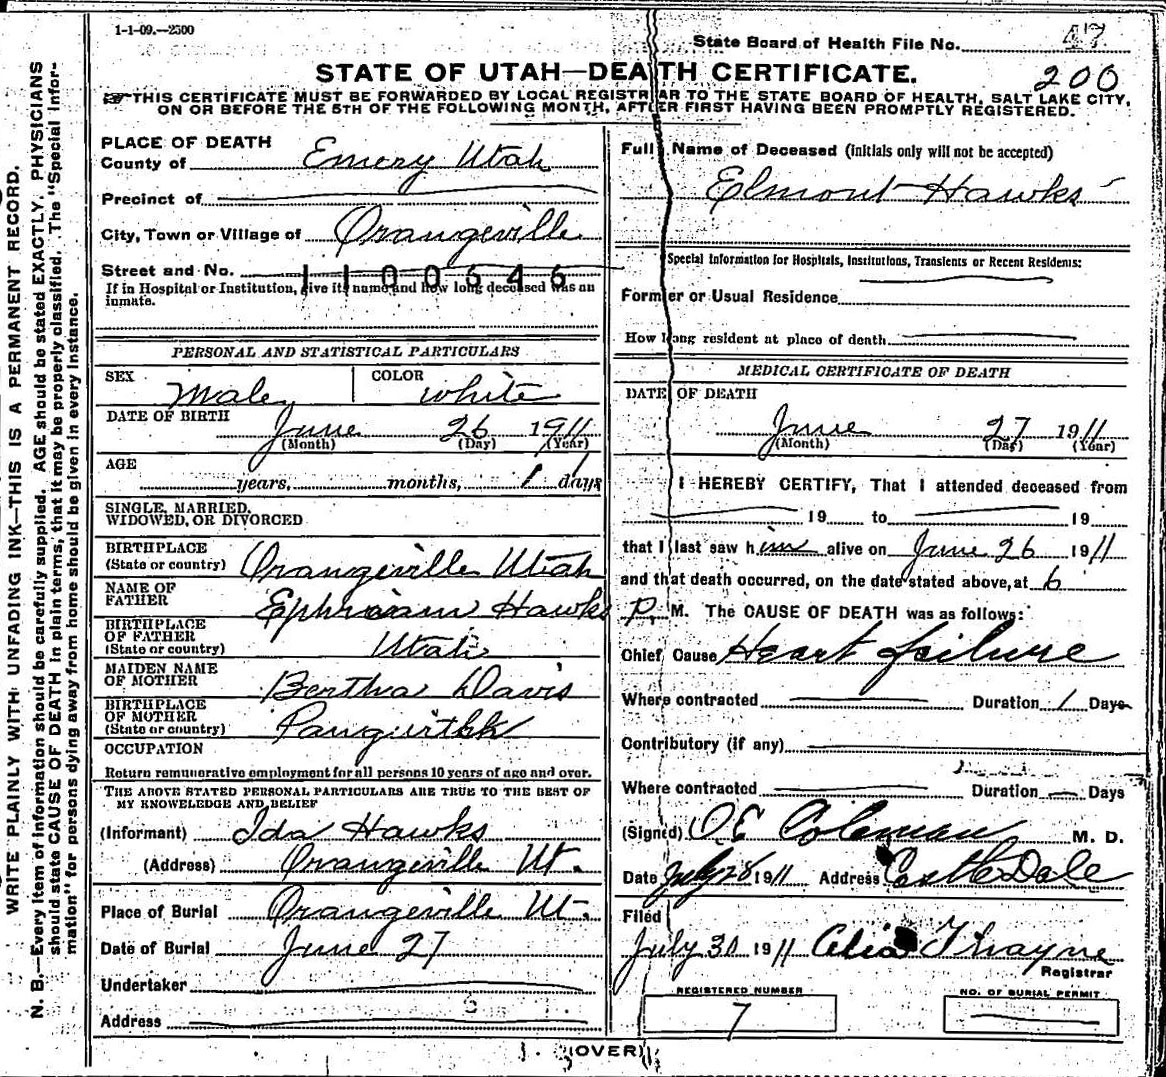 1-1-09.—2500
State Board of Health File No. 47
STATE OF UTAH—DEATH CERTIFICATE. 200
THIS CERTIFICATE MUST BE FORWARDED BY LOCAL REGISTRAR TO THE STATE BOARD OF HEALTH, SALT LAKE CITY,
ON OR BEFORE THE 5TH OF THE FOLLOWING MONTH, AFTER FIRST HAVING BEEN PROMPTLY REGISTERED.
WRITE PLAINLY WITH UNFADING INK—THIS IS A PERMANENT RECORD.
N. B.—Every item of information should be carefully supplied. AGE should be stated EXACTLY. PHYSICIANS
should state CAUSE OF DEATH in plain terms, that it may be properly classified. The "Special Infor-
mation" for persons dying away from home should be given in every instance.
PLACE OF DEATH
County of Emery Utah
Precinct of
City, Town or Village of Orangeville
Street and No.
1100646
If in Hospital or Institution, give it name and how long deceased was an
inmate.
PERSONAL AND STATISTICAL PARTICULARS
SEX Male COLOR white
DATE OF BIRTH
June 26 1911
(Month) (Day) (Year)
AGE
years, months, 1 days
SINGLE, MARRIED,
WIDOWED, OR DIVORCED
BIRTHPLACE
(State or country) Orangeville Utah
NAME OF
FATHER Ephraim Hawks
BIRTHPLACE
OF FATHER
(State or country) Utah
MAIDEN NAME
OF MOTHER Bertha Davis
BIRTHPLACE
OF MOTHER
(State or country)
OCCUPATION
Return remunerative employment for all persons 10 years of age and over.
THE ABOVE STATED PERSONAL PARTICULARS ARE TRUE TO THE BEST OF
MY KNOWELEDGE AND BELIEF
(Informant) Ida Hawks
(Address) Orangeville Ut.
Place of Burial Orangeville Ut.
Date of Burial June 27
Undertaker
Address
Full Name of Deceased (initials only will not be accepted)
Elmont Hawks
Special Information for Hospitals, Institutions, Transients or Recent Residents:
Former or Usual Residence
How long resident at place of death
MEDICAL CERTIFICATE OF DEATH
DATE OF DEATH
June 27 1911
(Month) (Day) (Year)
I HEREBY CERTIFY, That I attended deceased from
19 to 19
that I last saw him alive on June 26 1911
and that death occurred, on the date stated above, at 6
P. M. The CAUSE OF DEATH was as follows:
Chief Cause Heart failure
Where contracted Duration 1 Days
Contributory (if any)
Where contracted Duration Days
(Signed) O E Coleman M. D.
Date July 28 1911 Address Castle Dale
Filed
July 30 1911 Thayne
Registrar
REGISTERED NUMBER
7
NO. OF BURIAL PERMIT
(OVER)